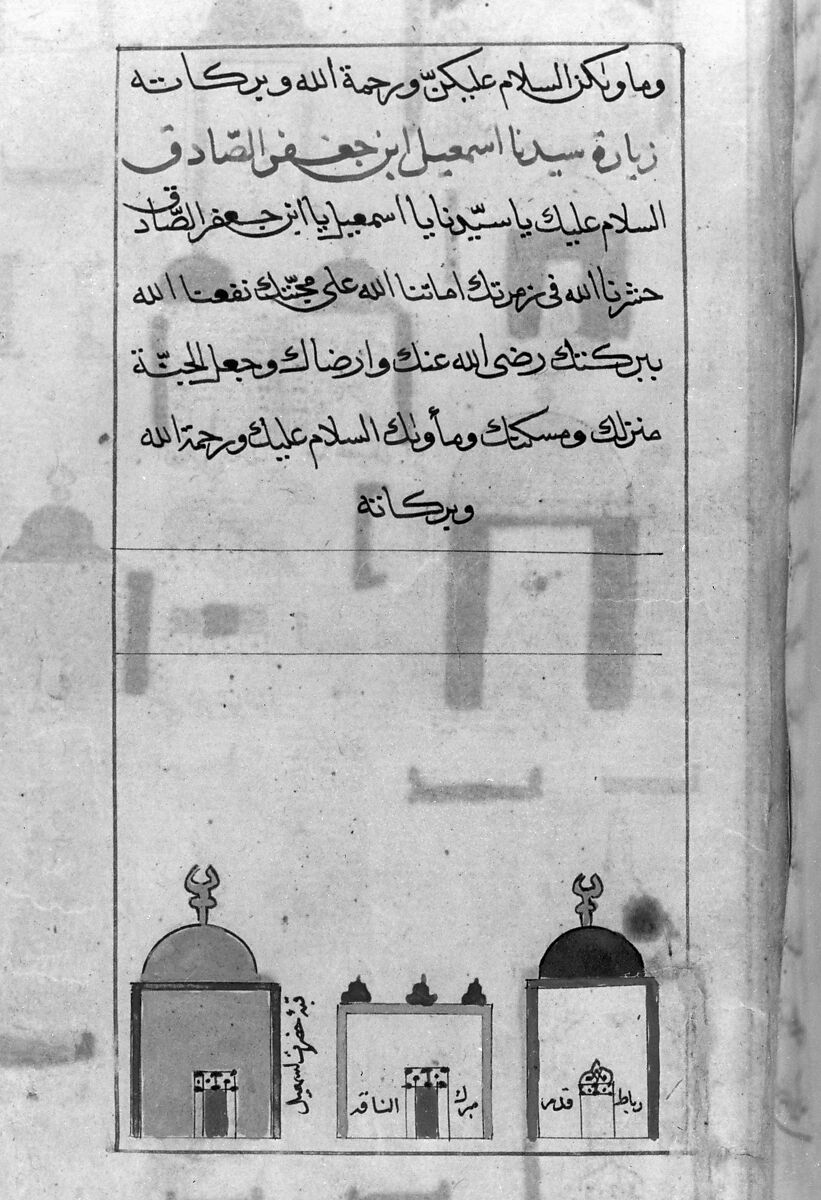 وماويكن السلام عليكنّ ورحمة الله وبركاته
زيارة سيدنا اسمعيل ابن جعفر الصّادق
السلام عليك ياسيّدنا يا اسمعيل يا ابن جعفر الصّادق
حشرنا الله فى زمرتك اماتنا الله على محبّتك نفعنا الله
ببركتك رضى الله عنك وارضاك وجعل الجنّة
منزلك ومسكنك ومأواك السلام عليك ورحمة الله
وبركاته
قبة حضرت اسمعيل
الناقد
رباط قدم